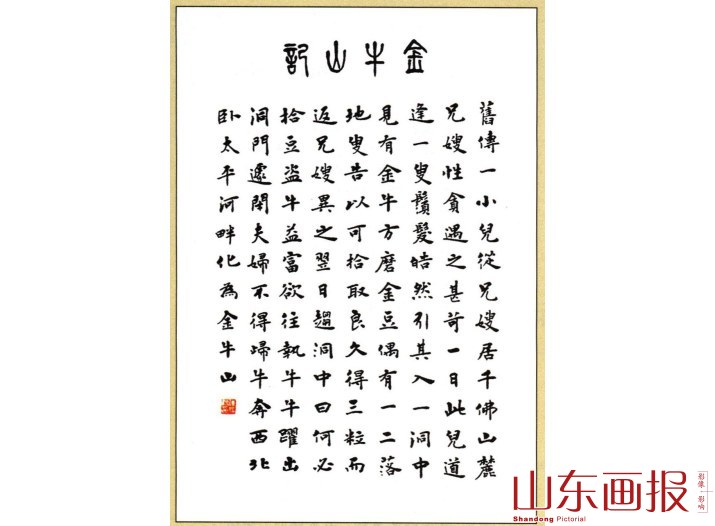 金牛山記
舊傳一小兒從兄嫂居千佛山麓
兄嫂性貪遇之甚苛一日此兒道
逢一叟鬚髮皓然引其入一洞中
見有金牛方磨金豆偶有一二落
地叟告以可拾取良久得三粒而
返兄嫂異之翌日趨洞中曰何必
拾豆盜牛益富欲往執牛牛躍出
洞門遽閉夫婦不得歸牛奔西北
卧太平河畔化為金牛山
山东画报
Shandong Pictorial
影像·影响